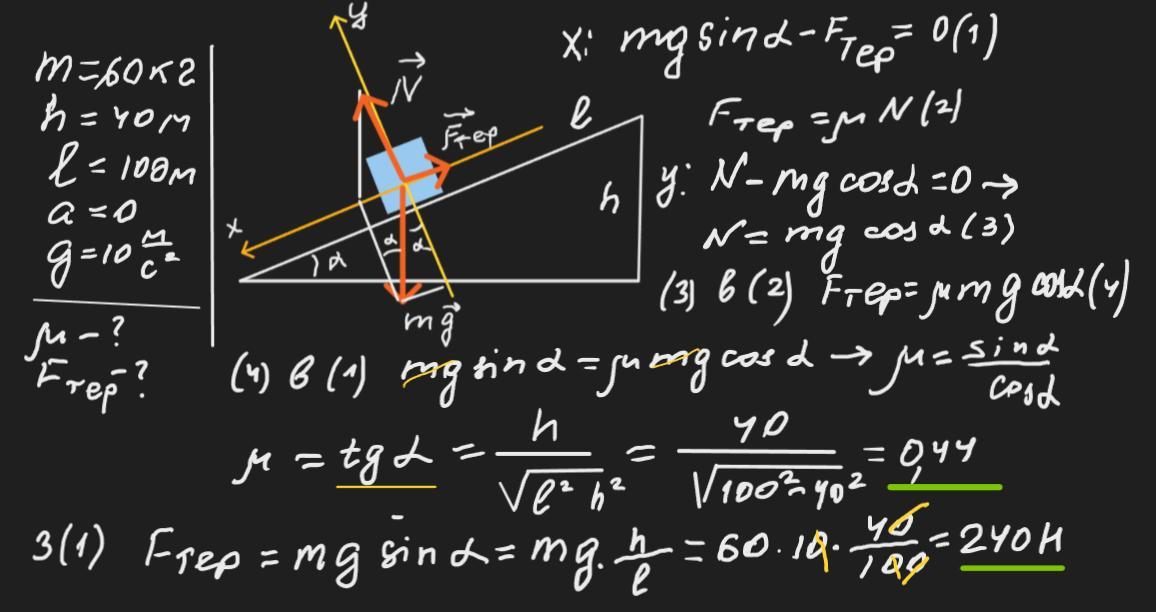 m=60кг
h=40м
l=100м
a=0
g=10 м/с²
μ-?
Fтер-?
y
N⃗
F⃗тер
l
h
x
α
α
α
mg⃗
x: mg sinα-Fтер=0(1)
Fтер=μN(2)
y: N-mg cosα=0→
N=mg cosα(3)
(3) в (2) Fтер=μmg cosα(4)
(4) в (1) mg sinα=μmg cosα→μ=sinα/cosα
μ=tgα=h/√l² h²=40/√100²-40²=0,44
З(1) Fтер=mg sinα=mg·h/l=60·10·40/100=240Н